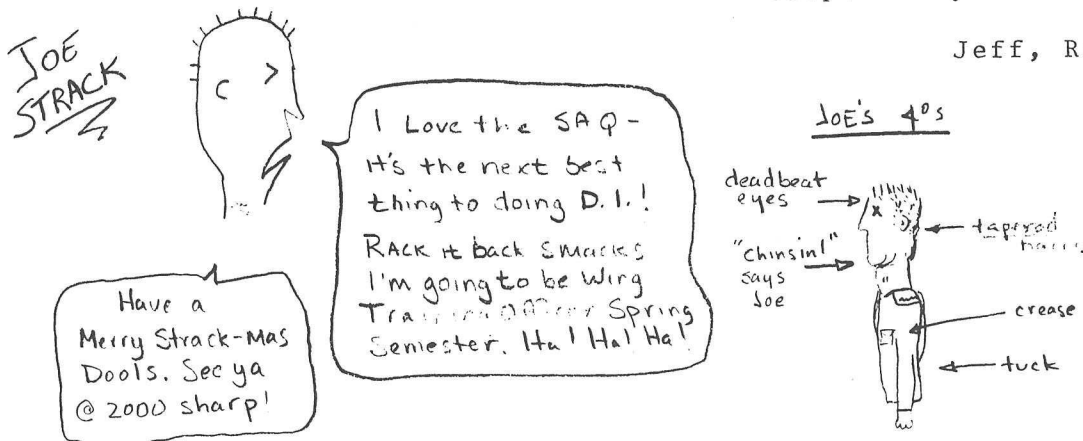 Jeff, R
JOE
STRACK
I Love the SAQ -
It's the next best
thing to doing D.I.!
RACK it back Smacks
I'm going to be Wing
Training Officer Spring
Semester. Ha! Ha! Ha!
Have a
Merry Strack-Mas
Dools. See ya
@ 2000 sharp!
JOE'S 4°s
deadbeat
eyes
"Chinsin!"
says
Joe
tapered
crease
tuck